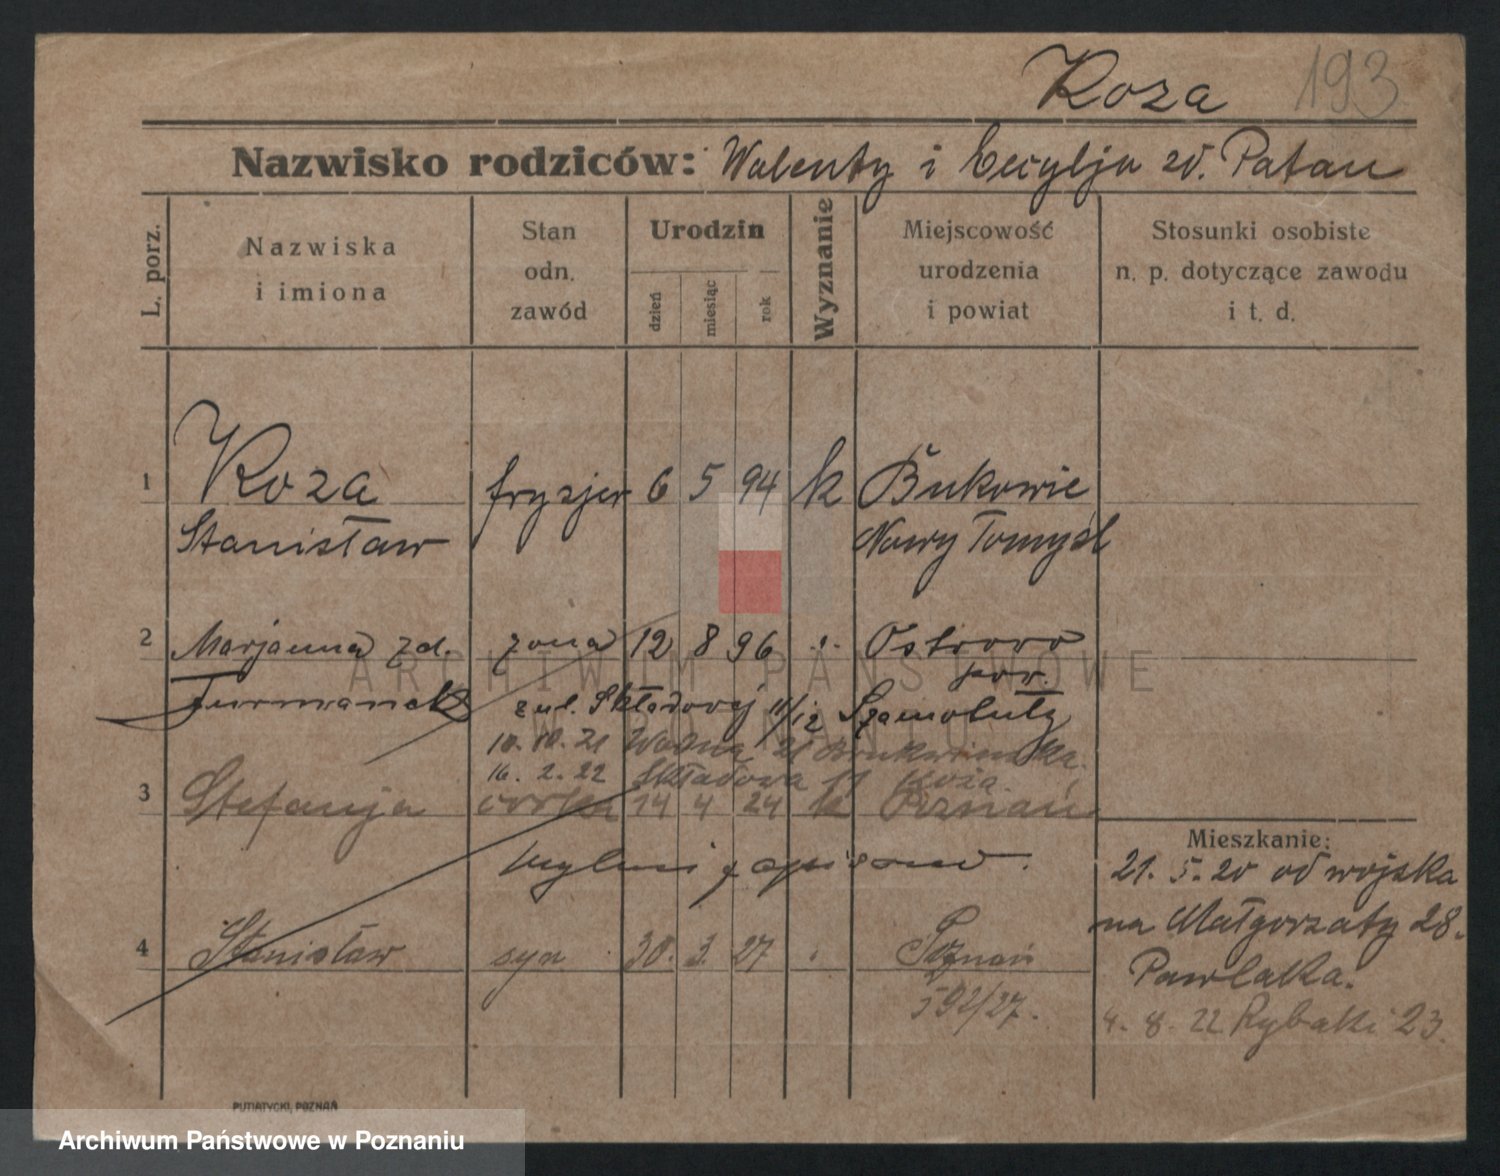 Koza 193
Nazwisko rodziców: Walenty i Cecylja zd. Patan
L. porz.
Nazwiska i imiona
Stan odn. zawód
Urodzin
dzień miesiąc rok
Wyznanie
Miejscowość urodzenia i powiat
Stosunki osobiste n. p. dotyczące zawodu i t. d.
1 Koza fryzjer 6 5 94 k Bukowie
Stanisław Nowy Tomyśl
2 Marjanna zd. żona 12 8 96 Ostroro
pow.
Furmanek z ul. Składovej 11/12 Szamotuły
10. 10. 21 Wodna 21
16. 2. 22 Składowa 11 Koza
3 Stefanja córka 14 4 24 k Poznań
4 Stanisław syn 30. 3. 27 Poznań
592/27.
Mieszkanie:
21. 5. 20 od wojska
na Małgorzaty 28.
Pawlaka.
4. 8. 22 Rybaki 23.
PUTIATYCKI, POZNAŃ
ARCHIWUM PAŃSTWOWE
W POZNANIU
Archiwum Państwowe w Poznaniu